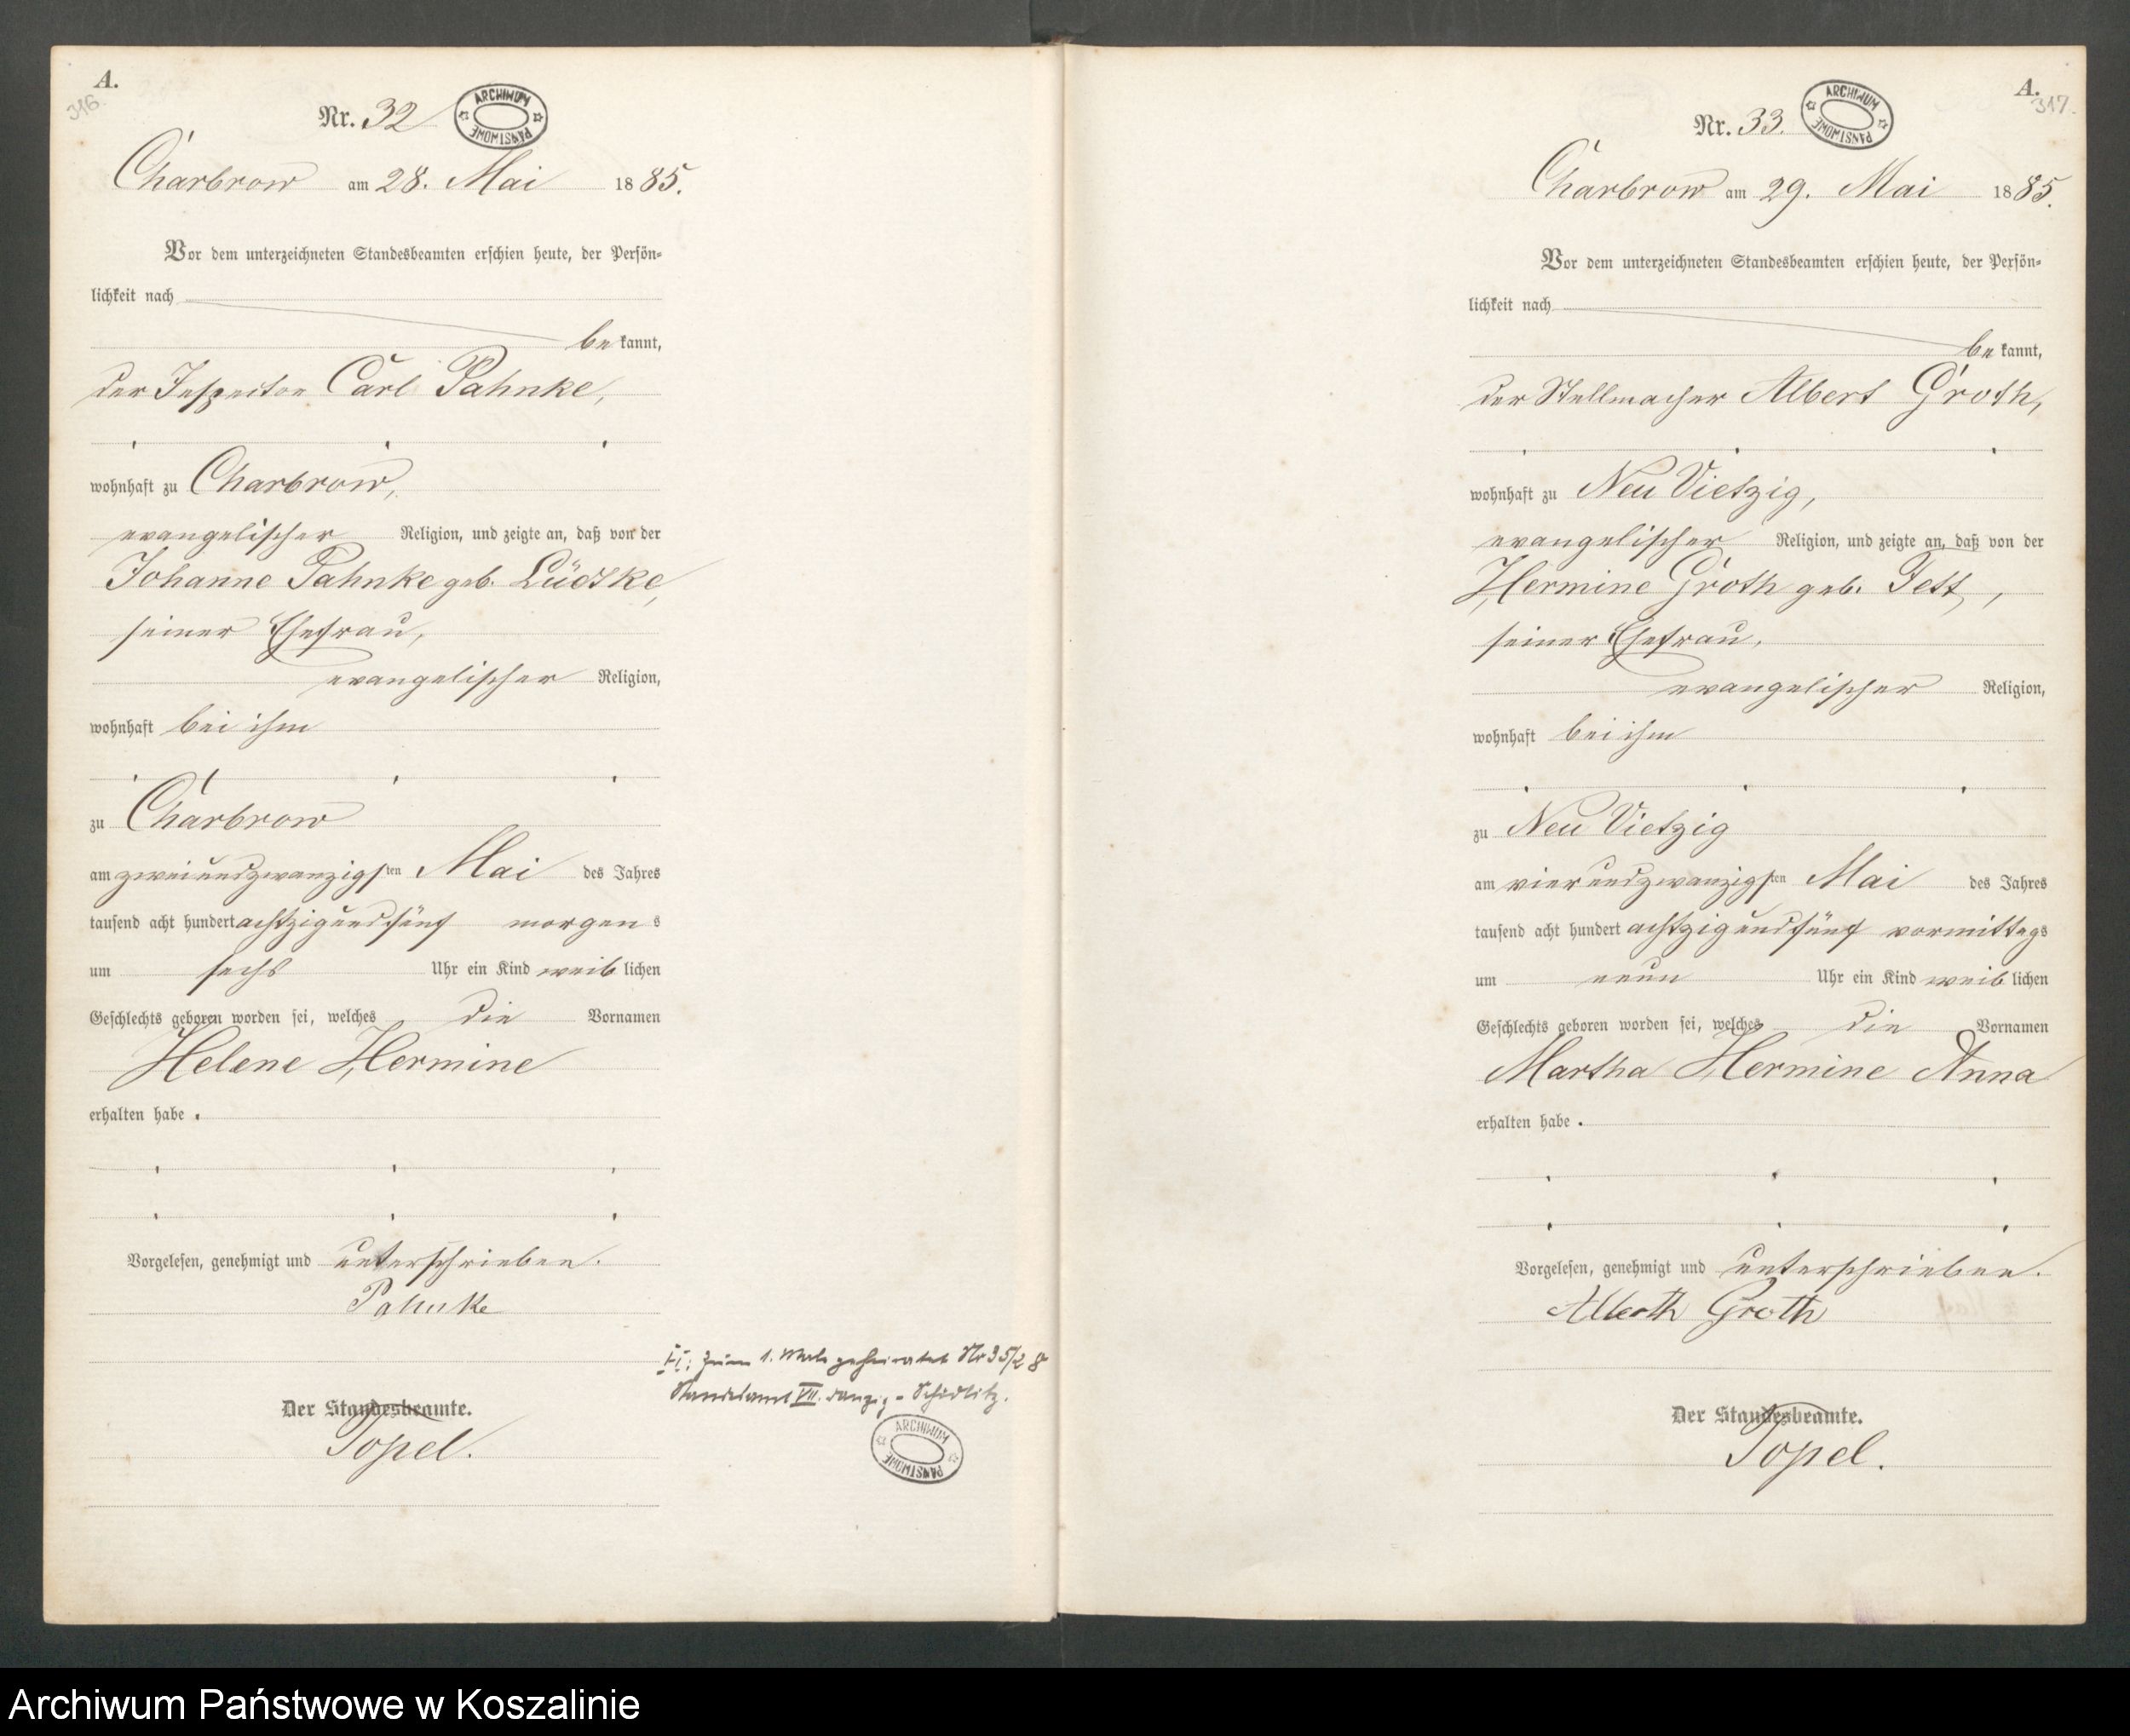 A.
316.
Nr. 32
ARCHIWUM PAŃSTWOWE
Charbrow am 28. Mai 1885.
Vor dem unterzeichneten Standesbeamten erschien heute, der Persön-
lichkeit nach
bekannt,
der Inspector Carl Pahnke,
wohnhaft zu Charbrow,
evangelischer Religion, und zeigte an, daß von der
Johanne Pahnke geb. Lüdtke,
seiner Ehefrau,
evangelischer Religion,
wohnhaft bei ihm
zu Charbrow
am zweiundzwanzigsten Mai des Jahres
tausend acht hundert achtzig und fünf morgens
um sechs Uhr ein Kind weiblichen
Geschlechts geboren worden sei, welches die Vornamen
Helene Hermine
erhalten habe.
Vorgelesen, genehmigt und unterschrieben.
Pahnke
Der Standesbeamte.
Topel.
zum 1. Male geheiratet Nr 35/28
Standesamt VII. Danzig-Schidlitz.
ARCHIWUM PAŃSTWOWE
A.
317.
Nr. 33.
ARCHIWUM PAŃSTWOWE
Charbrow am 29. Mai 1885.
Vor dem unterzeichneten Standesbeamten erschien heute, der Persön-
lichkeit nach
bekannt,
der Stellmacher Albert Groth,
wohnhaft zu Neu Vietzig,
evangelischer Religion, und zeigte an, daß von der
Hermine Groth geb. Tett,
seiner Ehefrau,
evangelischer Religion,
wohnhaft bei ihm
zu Neu Vietzig
am vierundzwanzigsten Mai des Jahres
tausend acht hundert achtzig und fünf vormittags
um neun Uhr ein Kind weiblichen
Geschlechts geboren worden sei, welches die Vornamen
Martha Hermine Anna
erhalten habe.
Vorgelesen, genehmigt und unterschrieben.
Alberth Groth
Der Standesbeamte.
Topel.
Archiwum Państwowe w Koszalinie